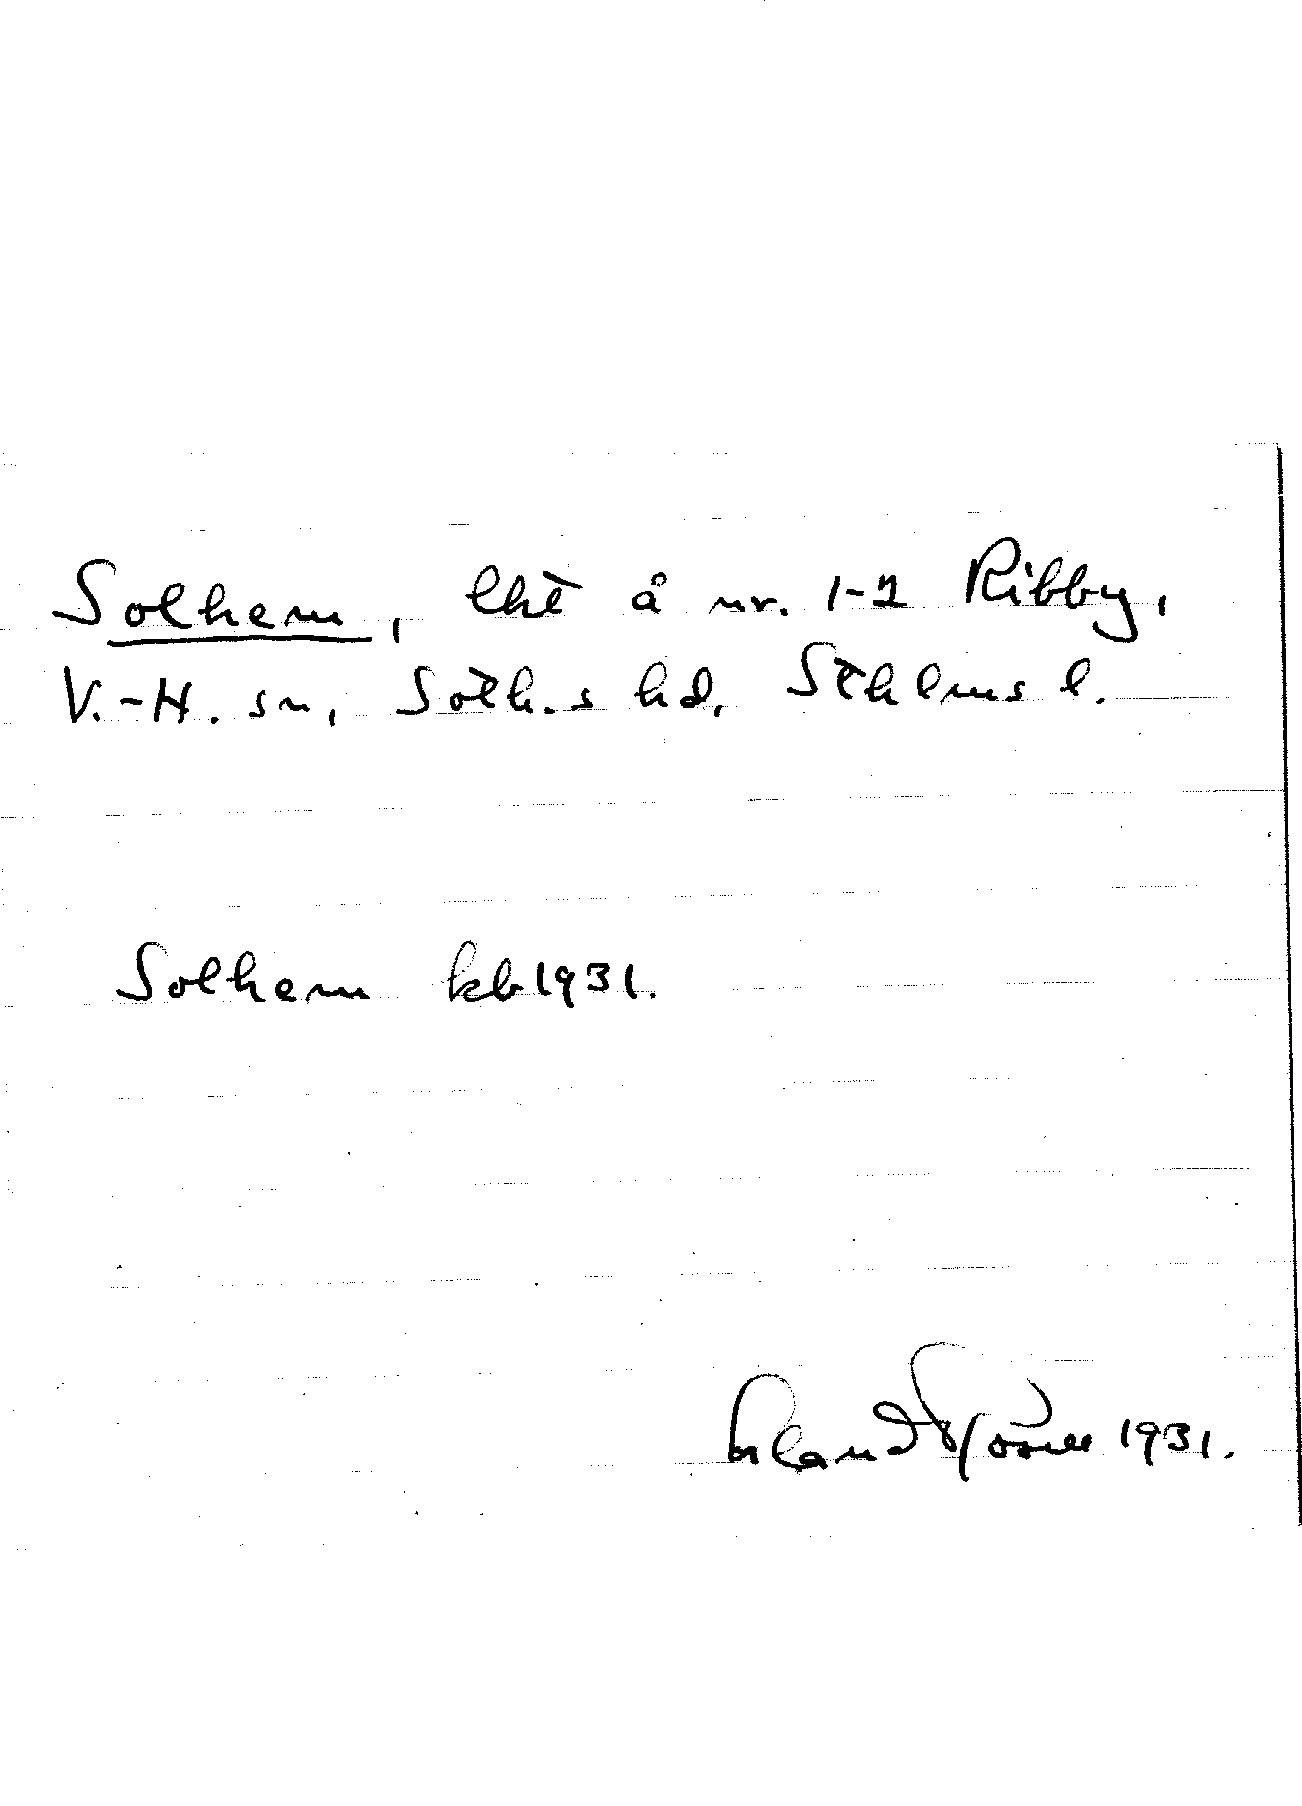 Solhem, lht å nr. 1-2 Ribby,
V.-H. sn, Soth.s hd, Sthlms l.
Solhem kb 1931.
1931.